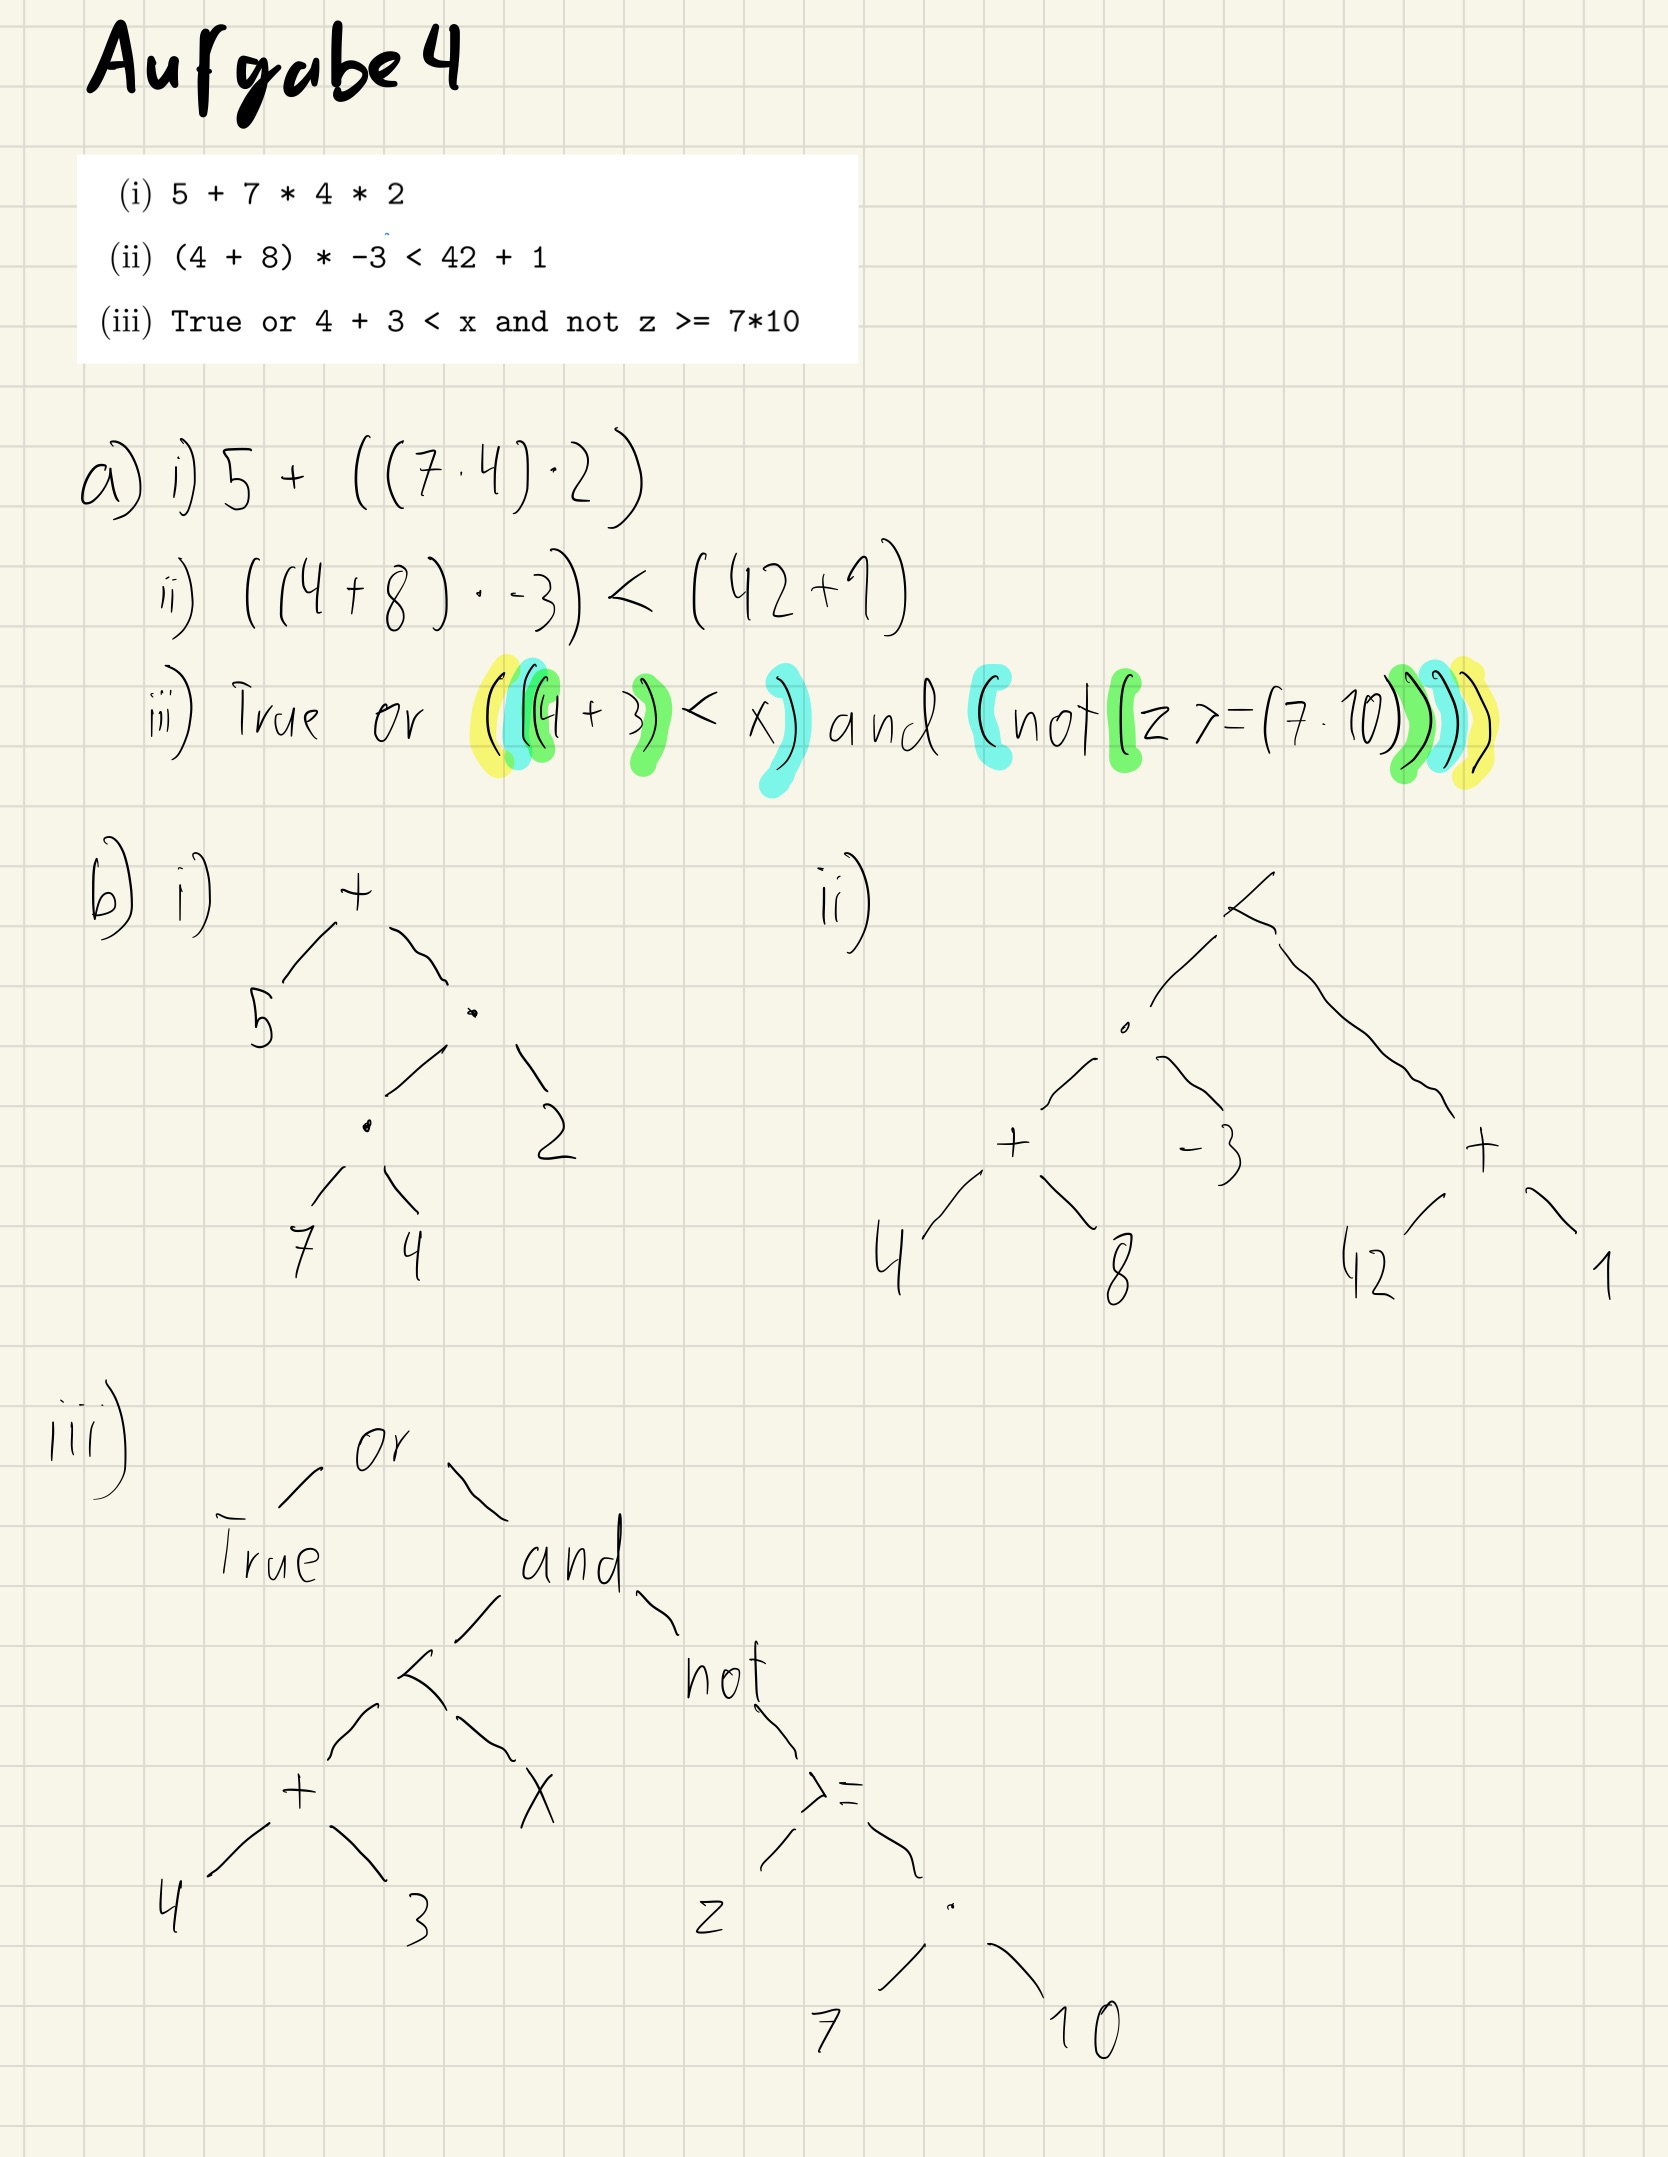 Aufgabe 4
(i) 5 + 7 * 4 * 2
(ii) (4 + 8) * -3 < 42 + 1
(iii) True or 4 + 3 < x and not z >= 7*10
a) i) 5 + ((7 · 4) · 2)
ii) ((4 + 8) · -3) < (42 + 1)
iii) True or (((4 + 3) < x) and (not (z >= (7 · 10))))
b) i) + ii) <
5 · ·
· 2 + -3 +
7 4 4 8 42 1
iii) or
True and
< not
+ x >=
4 3 z ·
7 10